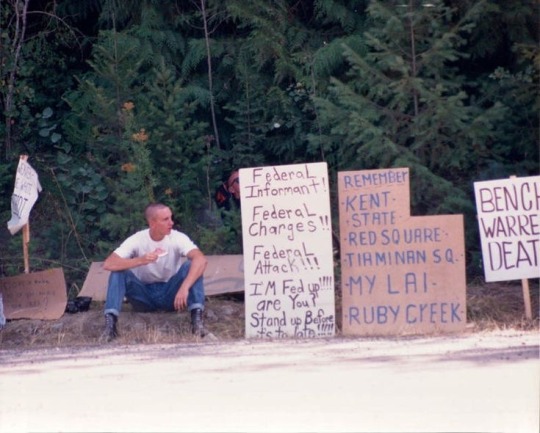 FederaL
Informant!
FederaL
Charges!!
FederaL
Attack!!!
I'M Fed up!!!!
are You?
Stand up Before
it's to late!!!!!
REMEMBER
KENT
STATE
-RED SQUARE-
TIAMINAN SQ.
-MY LAI-
-RUBY CREEK
BENCH
WARRE
DEAT